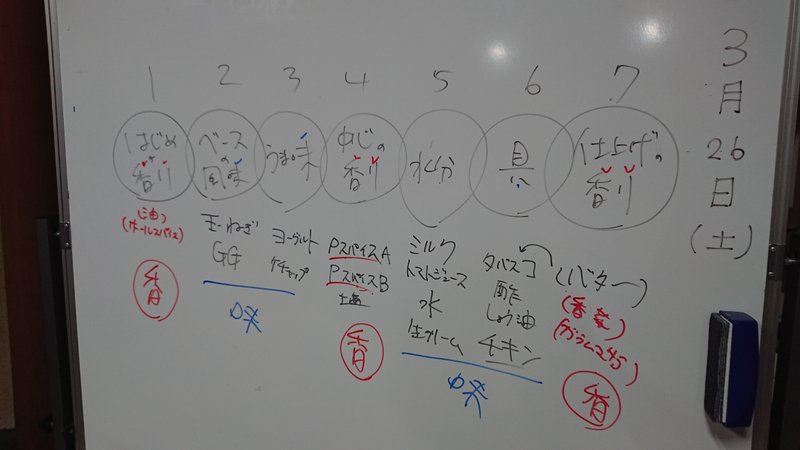 1 2 3 4 5 6 7
はじめの香り
ベースの風味
うま味
中心の香り
水分
具
仕上げの香り
(油)
(ホールスパイス)
香
玉ねぎ
GG
ヨーグルト
ケチャップ
味
PスパイスA
PスパイスB
塩
香
ミルク
トマトジュース
水
生クリーム
タバスコ
酢
しょう油
チキン
味
(バター)
(香菜)
(ガラムマサラ)
香
3月26日(土)